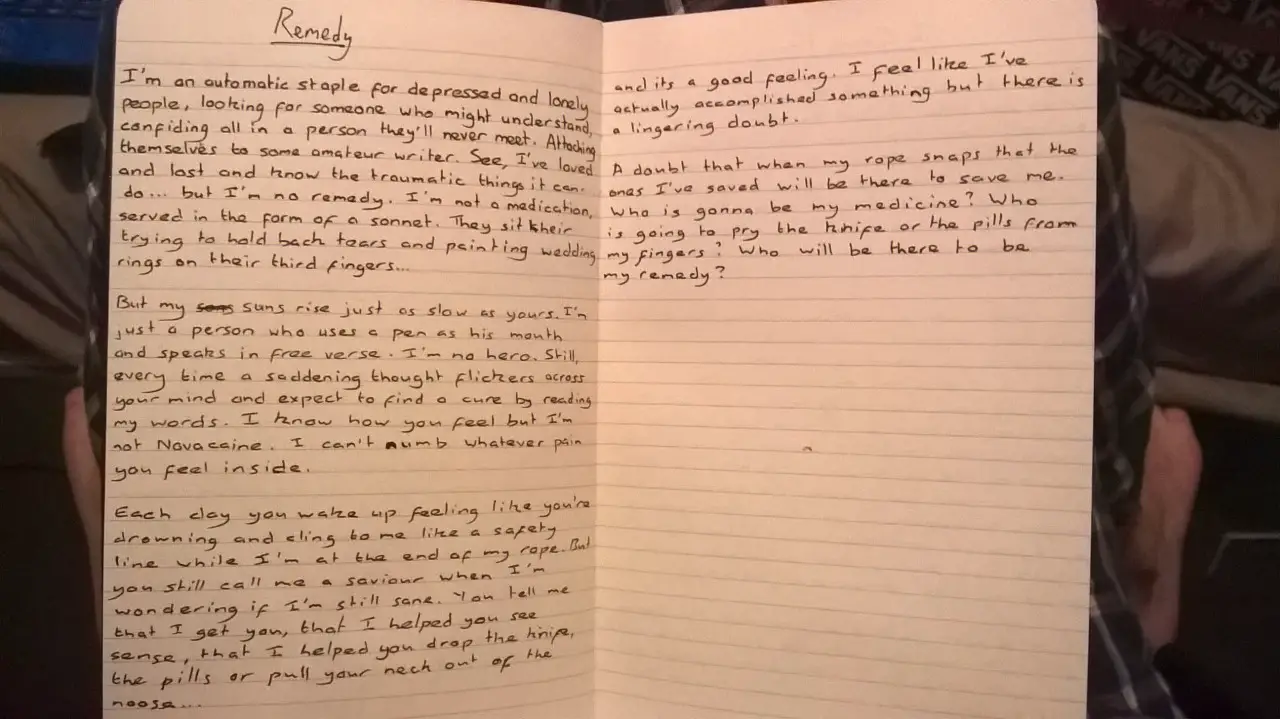 Remedy
I'm an automatic staple for depressed and lonely
people, looking for someone who might understand,
confiding all in a person they'll never meet. Attaching
themselves to some amateur writer. See, I've loved
and lost and know the traumatic things it can.
do... but I'm no remedy. I'm not a medication,
served in the form of a sonnet. They sit their
trying to hold back tears and painting wedding
rings on their third fingers...
But my suns rise just as slow as yours. I'm
just a person who uses a pen as his mouth
and speaks in free verse. I'm no hero. Still,
every time a saddening thought flickers across
your mind and expect to find a cure by reading
my words. I know how you feel but I'm
not Novacaine. I can't numb whatever pain
you feel inside.
Each day you wake up feeling like you're
drowning and cling to me like a safety
line while I'm at the end of my rope. But
you still call me a saviour when I'm
wondering if I'm still sane. You tell me
that I get you, that I helped you see
sense, that I helped you drop the knife,
the pills or pull your neck out of the
noose...
and its a good feeling. I feel like I've
actually accomplished something but there is
a lingering doubt.
A doubt that when my rope snaps that the
ones I've saved will be there to save me.
Who is gonna be my medicine? Who
is going to pry the knife or the pills from
my fingers? Who will be there to be
my remedy?
VANS
VANS
VANS
VANS